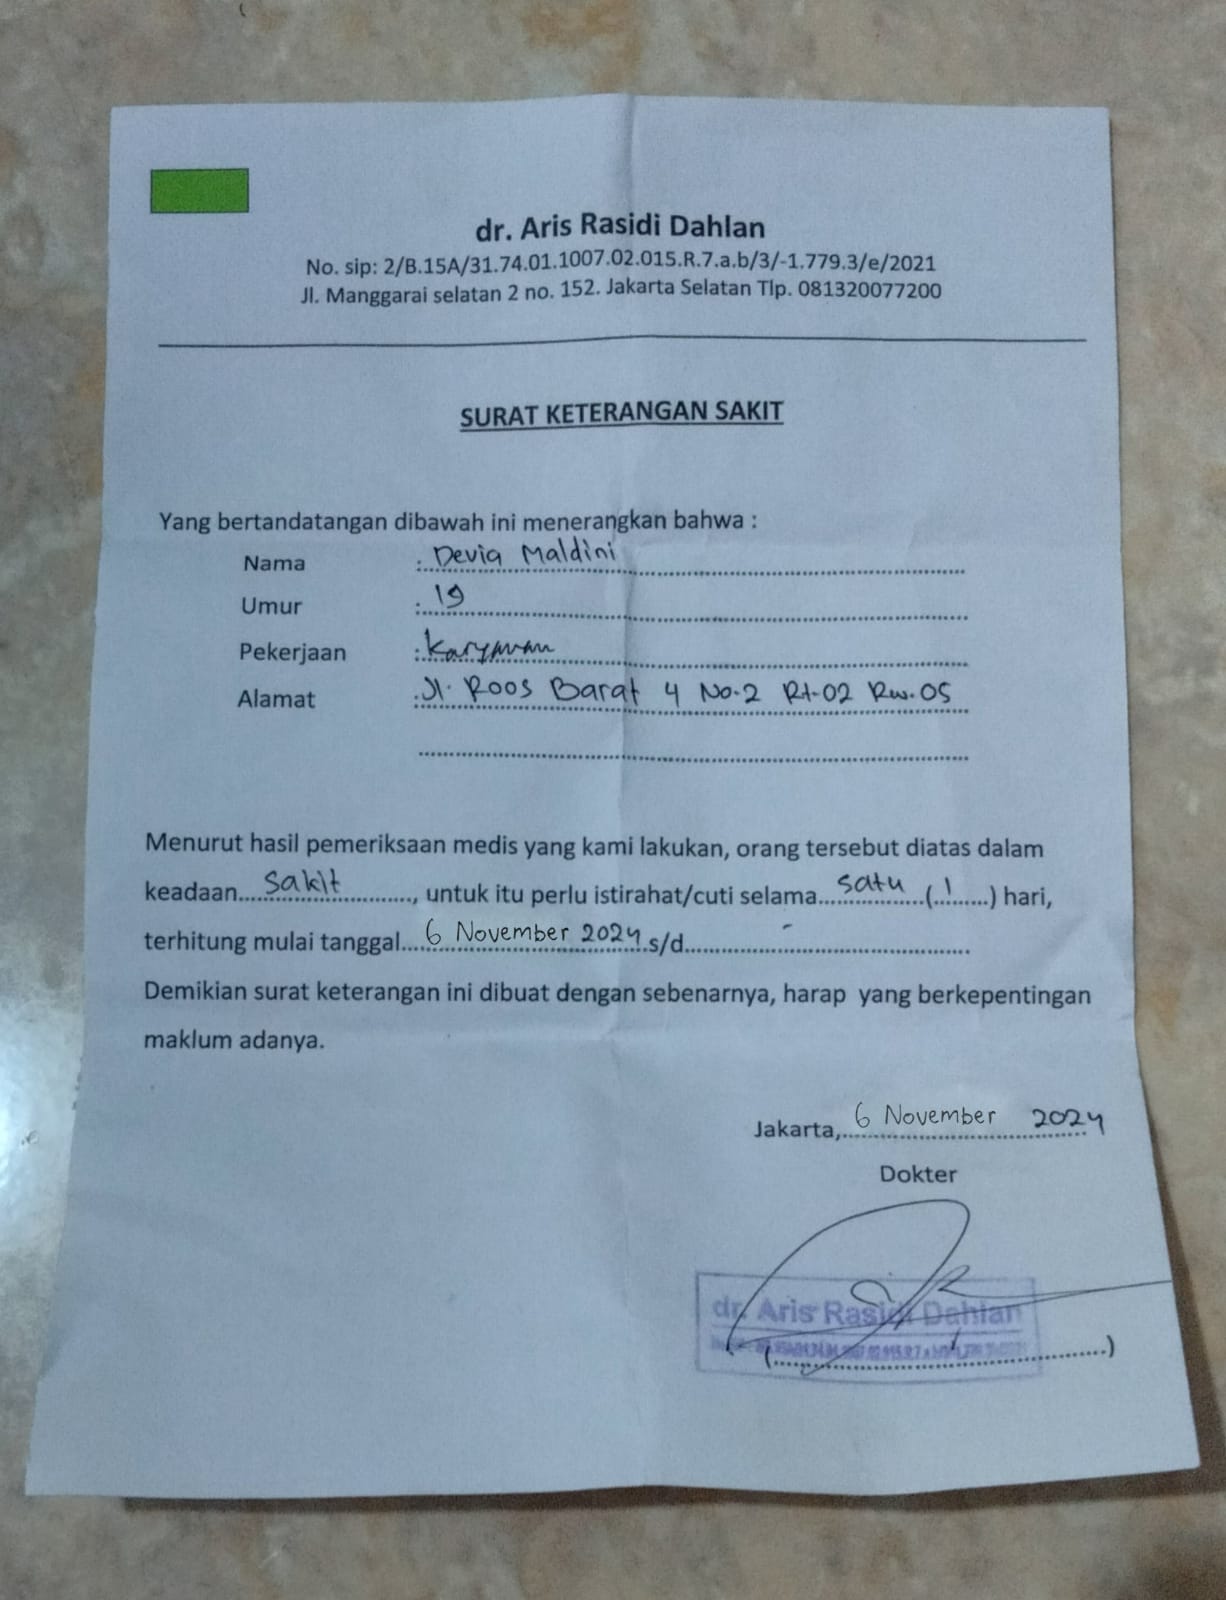 dr. Aris Rasidi Dahlan
No. sip: 2/B.15A/31.74.01.1007.02.015.R.7.a.b/3/-1.779.3/e/2021
Jl. Manggarai selatan 2 no. 152. Jakarta Selatan Tlp. 081320077200
SURAT KETERANGAN SAKIT
Yang bertandatangan dibawah ini menerangkan bahwa :
Nama : Devia Maldini
Umur : 19
Pekerjaan : Karyawan
Alamat : Jl. Roos Barat 4 No.2 Rt.02 Rw.05
Menurut hasil pemeriksaan medis yang kami lakukan, orang tersebut diatas dalam
keadaan... sakit ..., untuk itu perlu istirahat/cuti selama... satu ...(..1...) hari,
terhitung mulai tanggal... 6 November 2024 s/d... - ...
Demikian surat keterangan ini dibuat dengan sebenarnya, harap yang berkepentingan
maklum adanya.
Jakarta, 6 November 2024
Dokter
dr. Aris Rasidi Dahlan
(..............................)